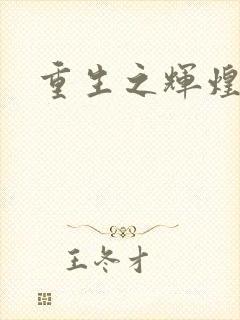 重生之辉煌
王冬才